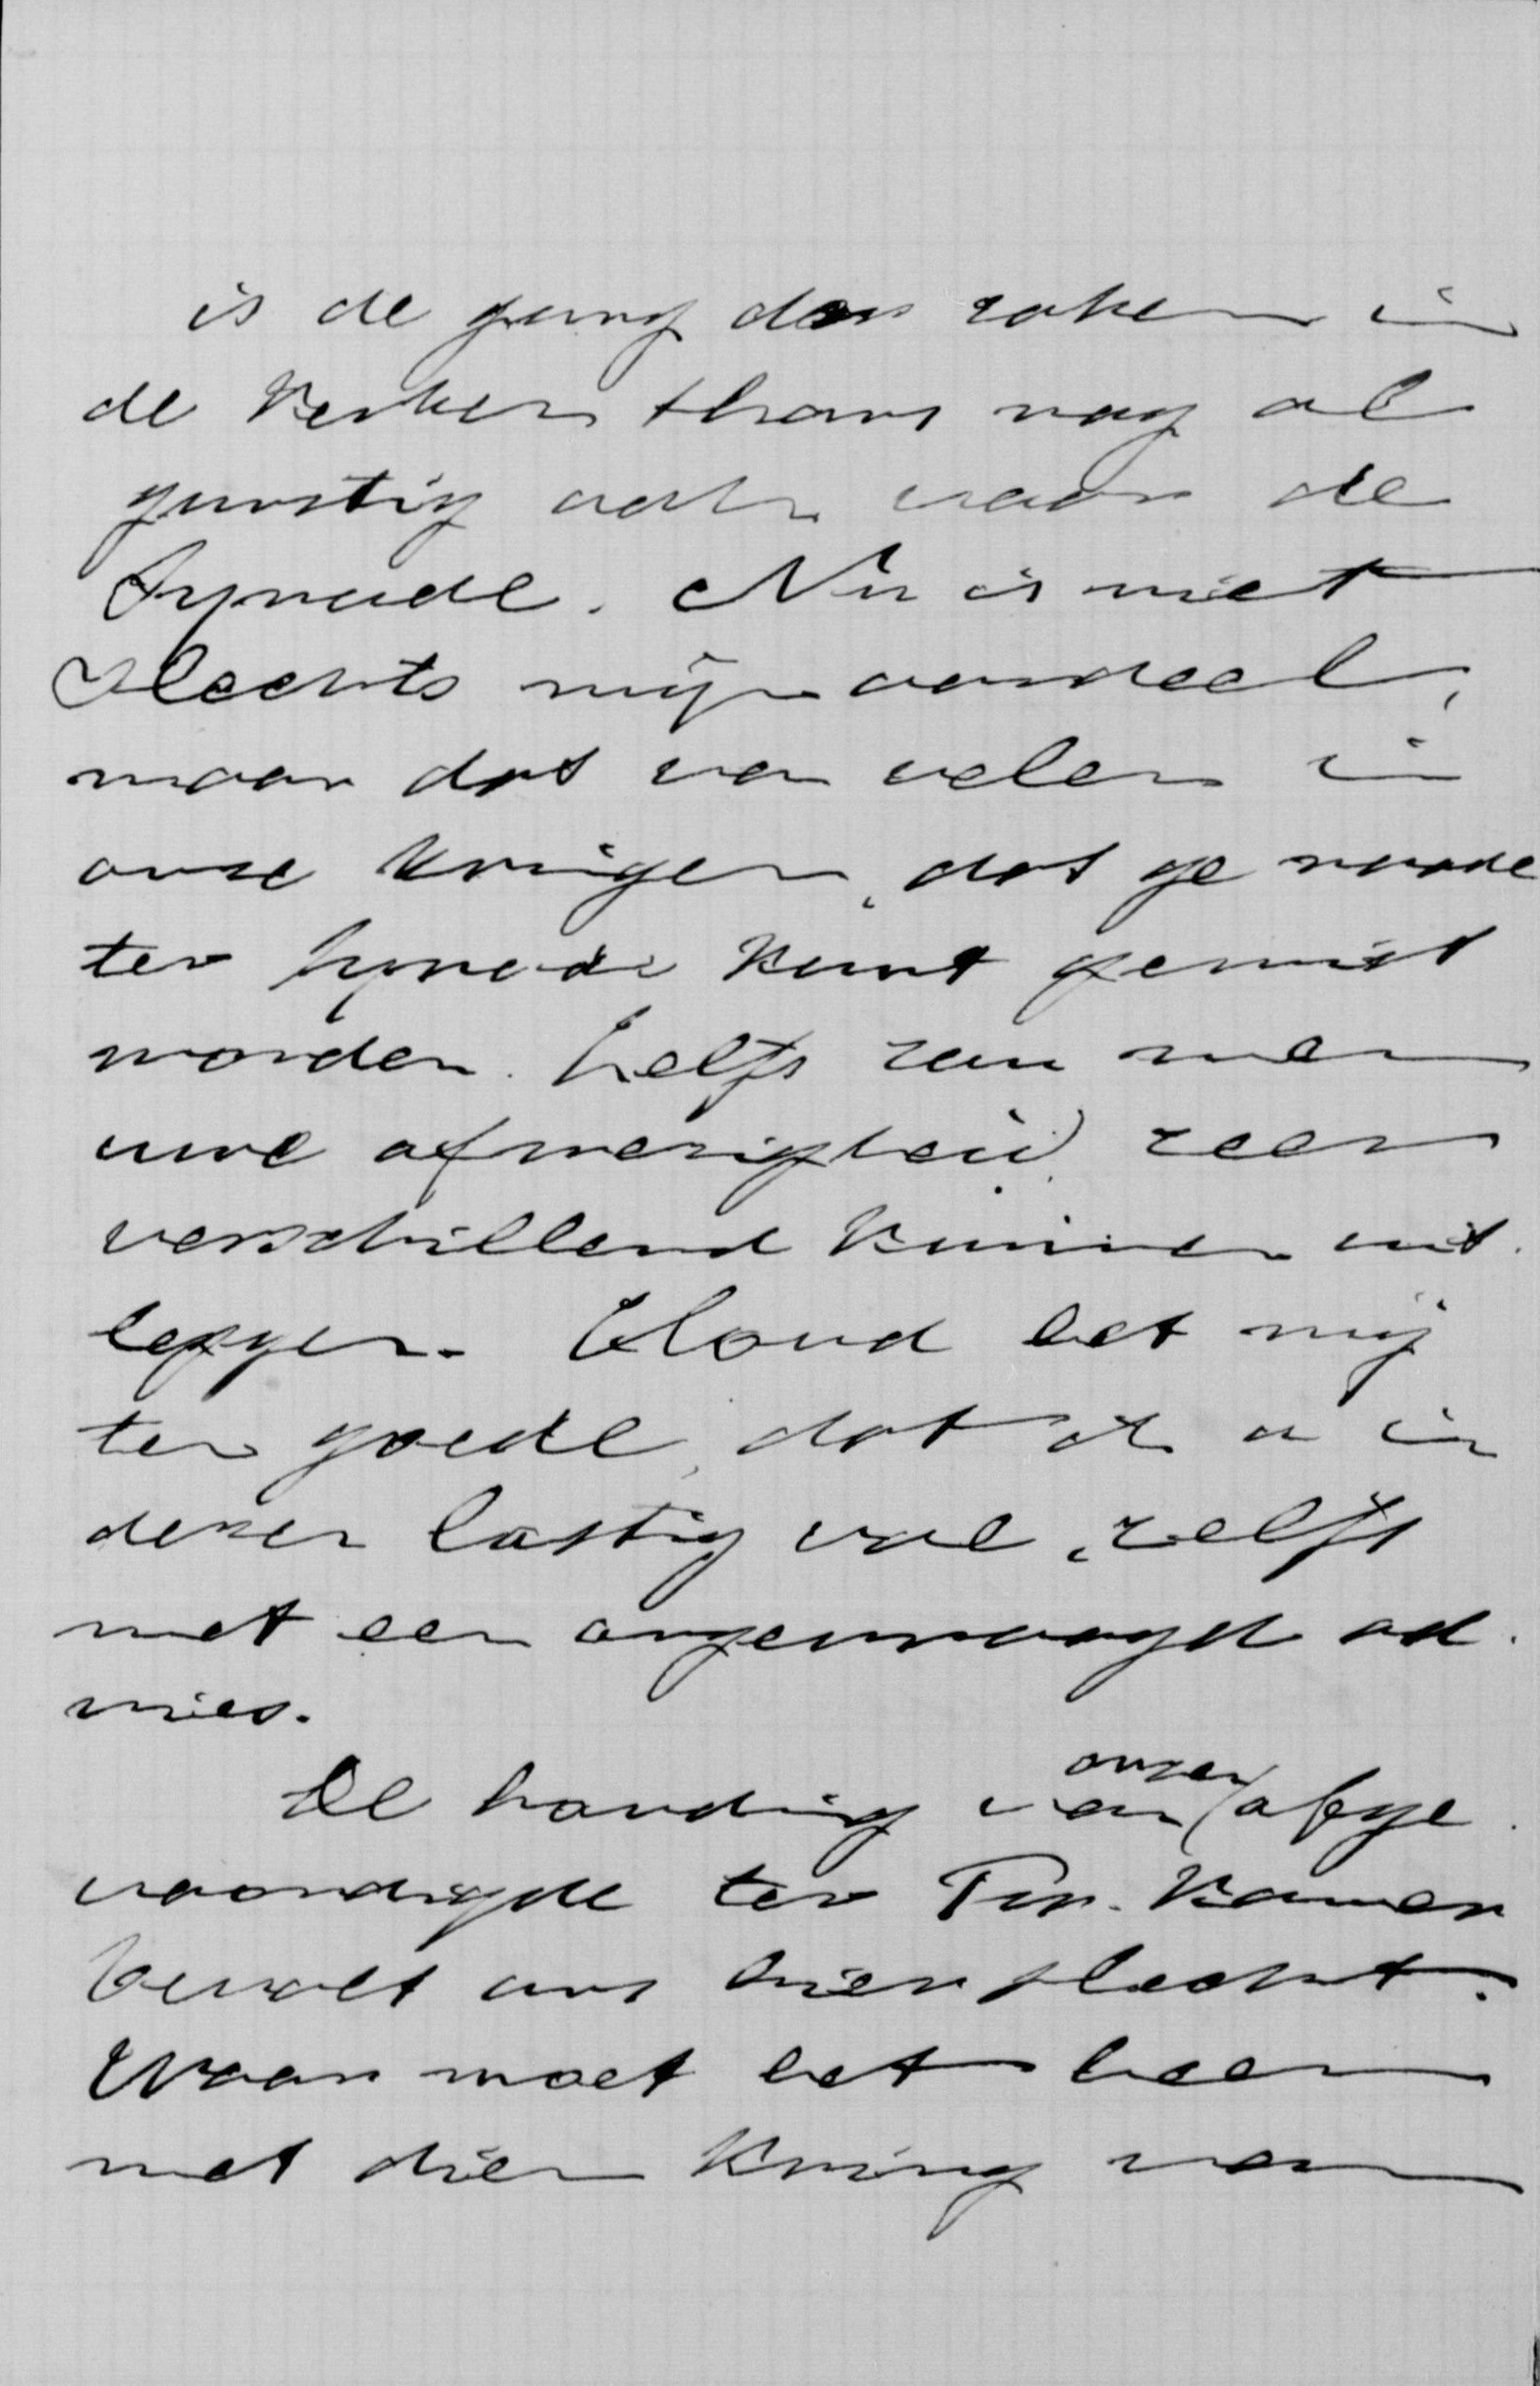 is de gang der zaken in
de Kerken thans nog al
gunstig ook voor de
Synode. Nu is niet
slechts mijn oordeel,
maar dat van velen in
onze kringen, dat ge noode
ter Synode kunt gemist
worden. Zelfs zou men
uwe afwezigheid zeer
verschillend kunnen uit-
leggen. Houd het mij
ten goede, dat ik u in
dezen lastig val, zelfs
met een ongevraagd ad-
vies.
De houding van onzen afge-
vaardigde ter Tw. Kamer
bevalt ons hier slecht.
Waar moet het heen
met dien Kring van